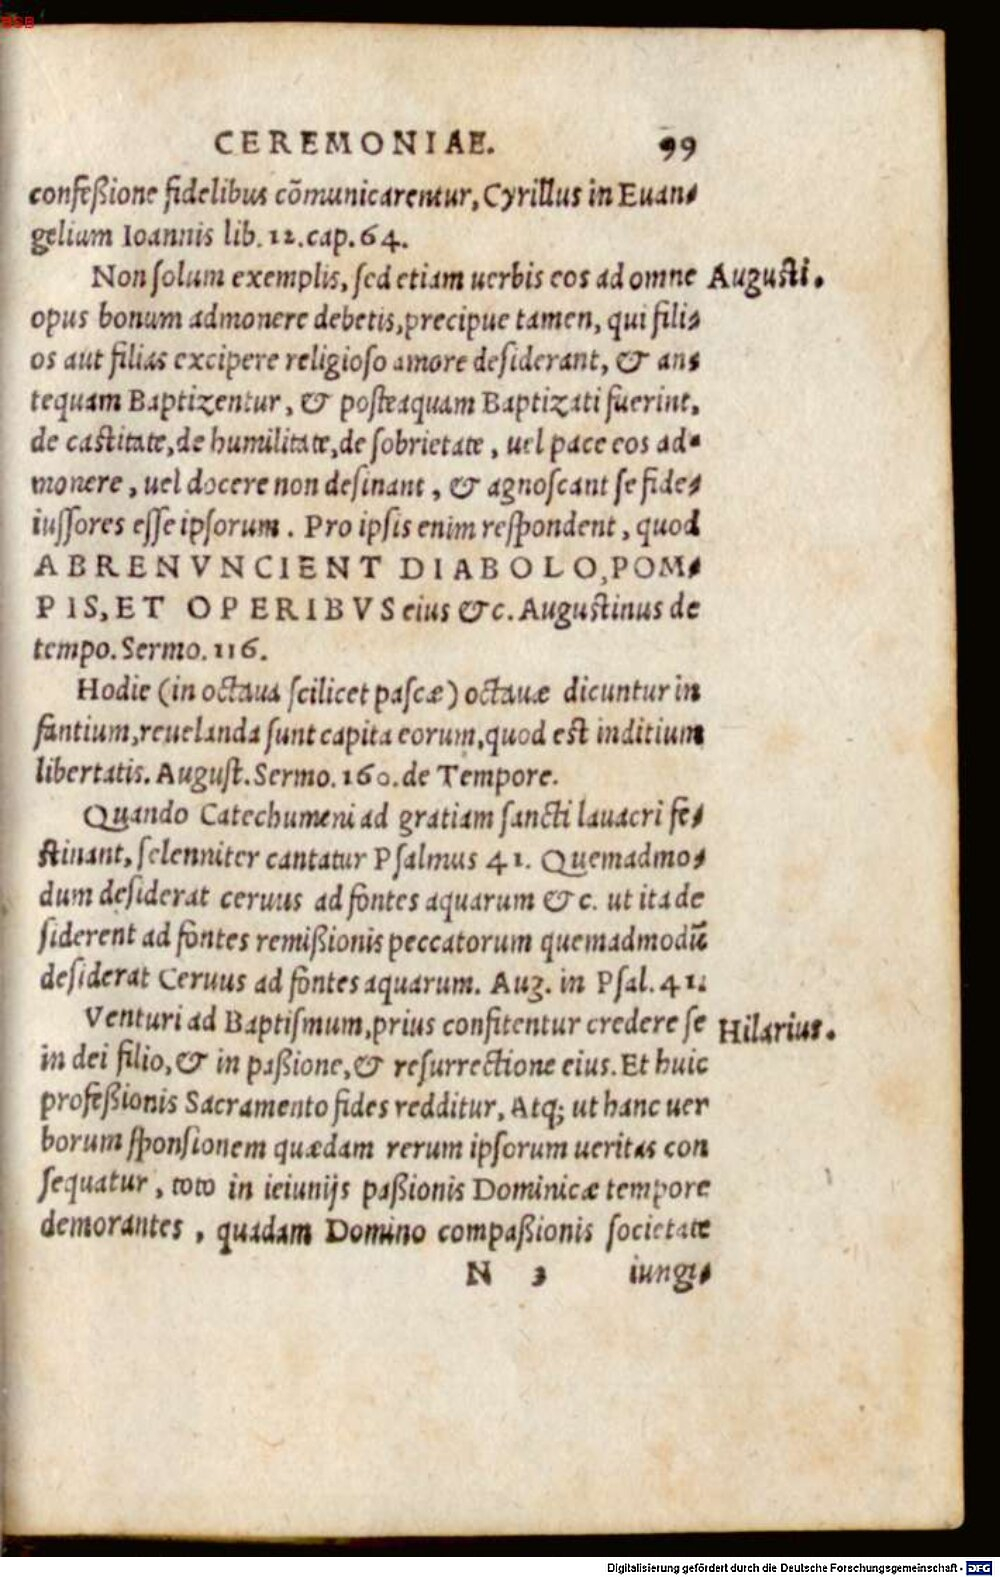 BSB
CEREMONIAE. 99
confeßione fidelibus cōmunicarentur, Cyrillus in Euan-
gelium Ioannis lib. 12. cap. 64.
Non solum exemplis, sed etiam uerbis eos ad omne Augusti.
opus bonum admonere debetis, precipue tamen, qui fili-
os aut filias excipere religioso amore desiderant, & an-
tequam Baptizentur, & posteaquam Baptizati fuerint,
de castitate, de humilitate, de sobrietate, uel pace eos ad-
monere, uel docere non desinant, & agnoscant se fide-
iussores esse ipsorum. Pro ipsis enim respondent, quod
ABRENVNCIENT DIABOLO, POM-
PIS, ET OPERIBVS eius &c. Augustinus de
tempo. Sermo. 116.
Hodie (in octaua scilicet pascæ) octauæ dicuntur in
fantium, reuelanda sunt capita eorum, quod est inditium
libertatis. August. Sermo. 160. de Tempore.
Quando Catechumeni ad gratiam sancti lauacri fe-
stinant, selenniter cantatur Psalmus 41. Quemadmo-
dum desiderat ceruus ad fontes aquarum &c. ut ita de
siderent ad fontes remißionis peccatorum quemadmodū
desiderat Ceruus ad fontes aquarum. Aug. in Psal. 41.
Venturi ad Baptismum, prius confitentur credere se Hilarius.
in dei filio, & in paßione, & resurrectione eius. Et huic
profeßionis Sacramento fides redditur, Atq; ut hanc uer
borum sponsionem quædam rerum ipsorum ueritas con
sequatur, toto in ieiunijs paßionis Dominicæ tempore
demorantes, quadam Domino compaßionis societate
N 3 iungi-
Digitalisierung gefördert durch die Deutsche Forschungsgemeinschaft - DFG